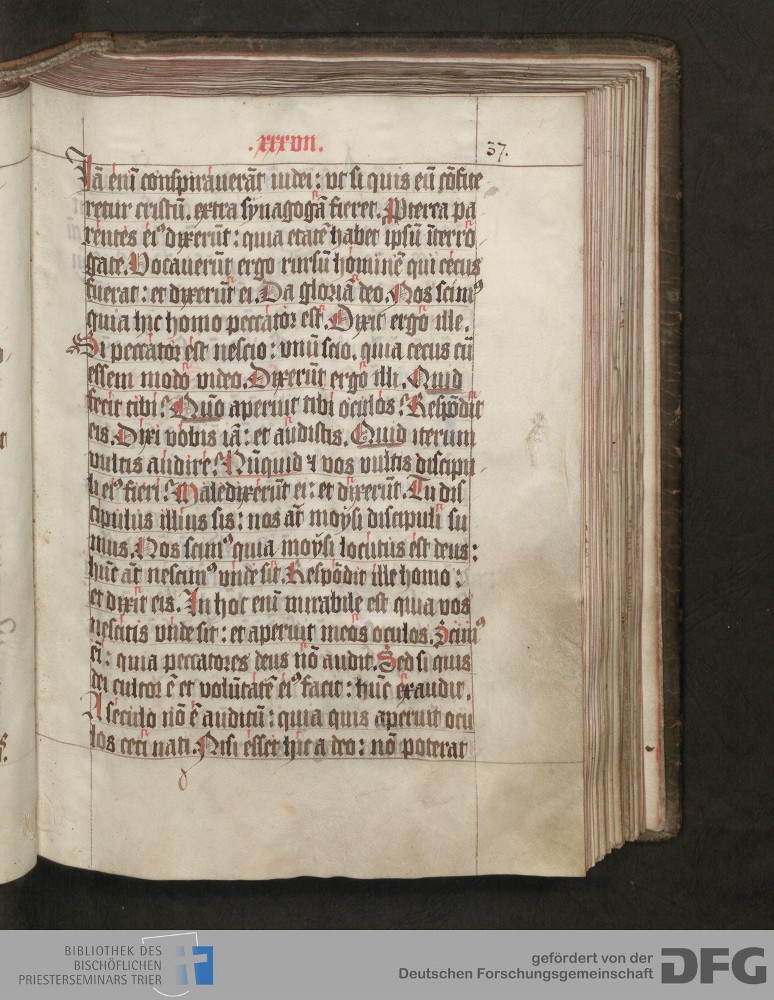 .xxxvii.
37.
Iā enī conspirauerāt iudei: vt si quis eū cōfite
retur cristū. extra synagogā fieret. Ppterea pa
rentes eiꝰ dixerūt: quia etatē habet ipsū īterro
gate. Vocauerūt ergo rursū hominē qui cecus
fuerat: et dixerūt ei. Da gloriā deo. Nos scimꝰ
quia hic homo peccator est. Dixit ergo ille.
Si peccator est nescio: vnū scio. quia cecus cū
essem modo video. Dixerūt ergo illi. Quid
fecit tibi? Quō aperuit tibi oculos? Respōdit
eis. Dixi vobis iā: et audistis. Quid iterum
vultis audire? Nūquid ⁊ vos vultis discipu
li eiꝰ fieri? Maledixerūt ei: et dixerūt. Tu dis
cipulus illius sis: nos aūt moysi discipuli su
mus. Nos scimꝰ quia moysi locutus est deus:
hūc aūt nescimꝰ vnde sit. Respōdit ille homo:
et dixit eis. In hoc enī mirabile est quia vos
nescitis vnde sit: et aperuit meos oculos. Scimꝰ
: quia peccatores deus nō audit. Sed si quis
dei cultor ē et volūtatē eiꝰ facit: hūc exaudit.
A seculo nō ē auditū: quia quis aperuit ocu
los ceci nati. Nisi esset hic a deo: nō poterat
BIBLIOTHEK DES
BISCHÖFLICHEN
PRIESTERSEMINARS TRIER
gefördert von der
Deutschen Forschungsgemeinschaft
DFG